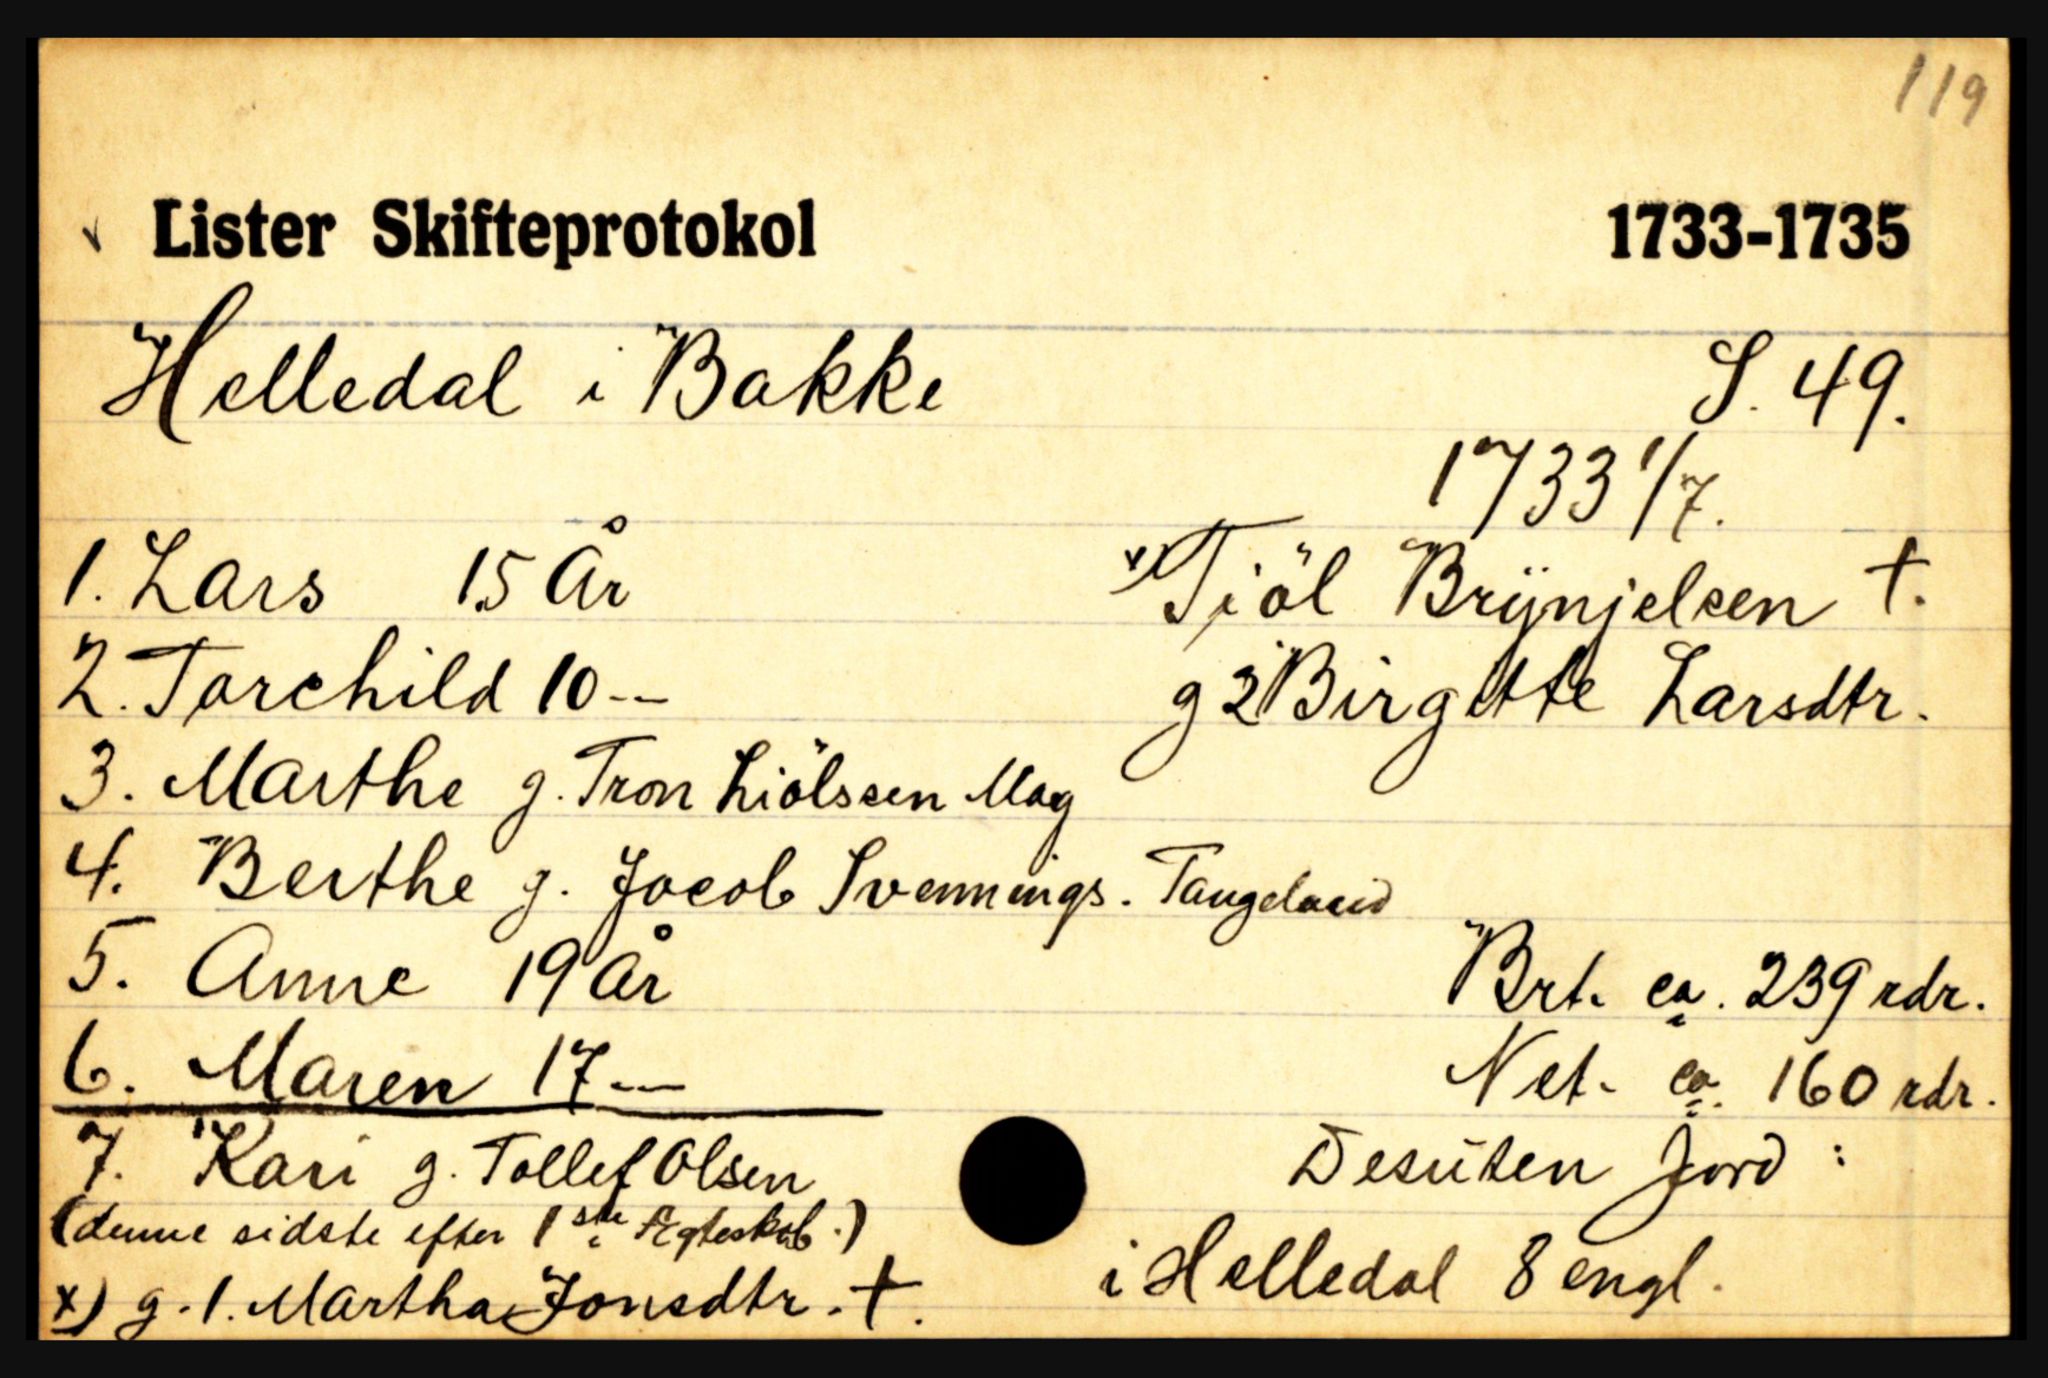 119
Lister Skifteprotokol 1733-1735
Helledal i Bakke S. 49.
1733 1/7.
1. Lars 15 År
x) Tiöl Brÿnjelsen †.
2. Torchild 10 --
g 2 Birgitte Larsdtr.
3. Marthe g. Tron Liölssen Mag
4. Berthe g. Jacob Svennings.
5. Anne 19 År
Brt. ca. 239 rdr.
6. Maren 17 --
Net. ca. 160 rdr.
7. Kari g. Tollef Olsen
Desuten Jord :
(denne sidste efter 1ste Egteskab.)
i Helledal 8 engl.
x) g. 1. Martha Jonsdtr. †.